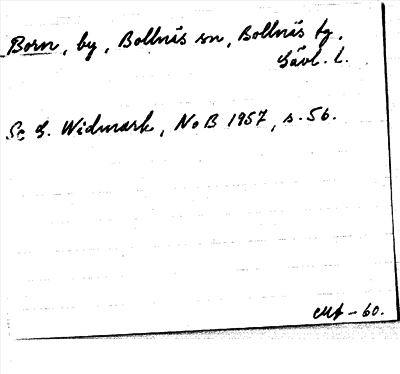 Born, by, Bollnäs sn, Bollnäs fg.
Gävl. l.
Se G. Widmark, NoB 1957, s. 56.
-60.